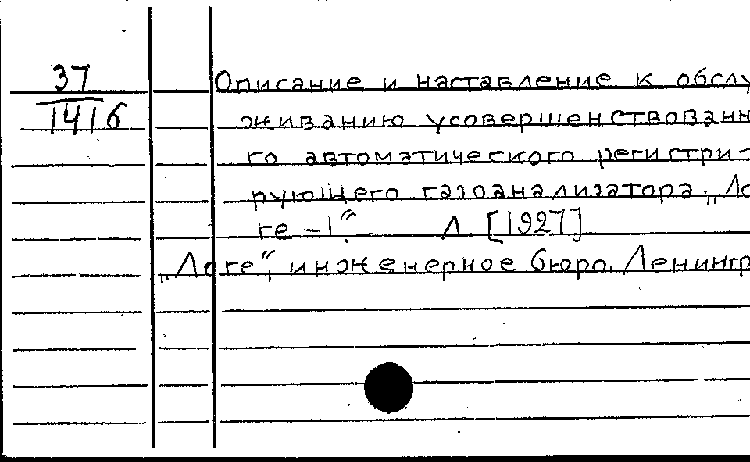 37
1416
Описание и наставление к обслу
живанию усовершенствованн
го автоматического регистри-
рующего газоанализатора „Ло
ге-1“. Л. [1927]
„Логе“, инженерное бюро. Ленингр